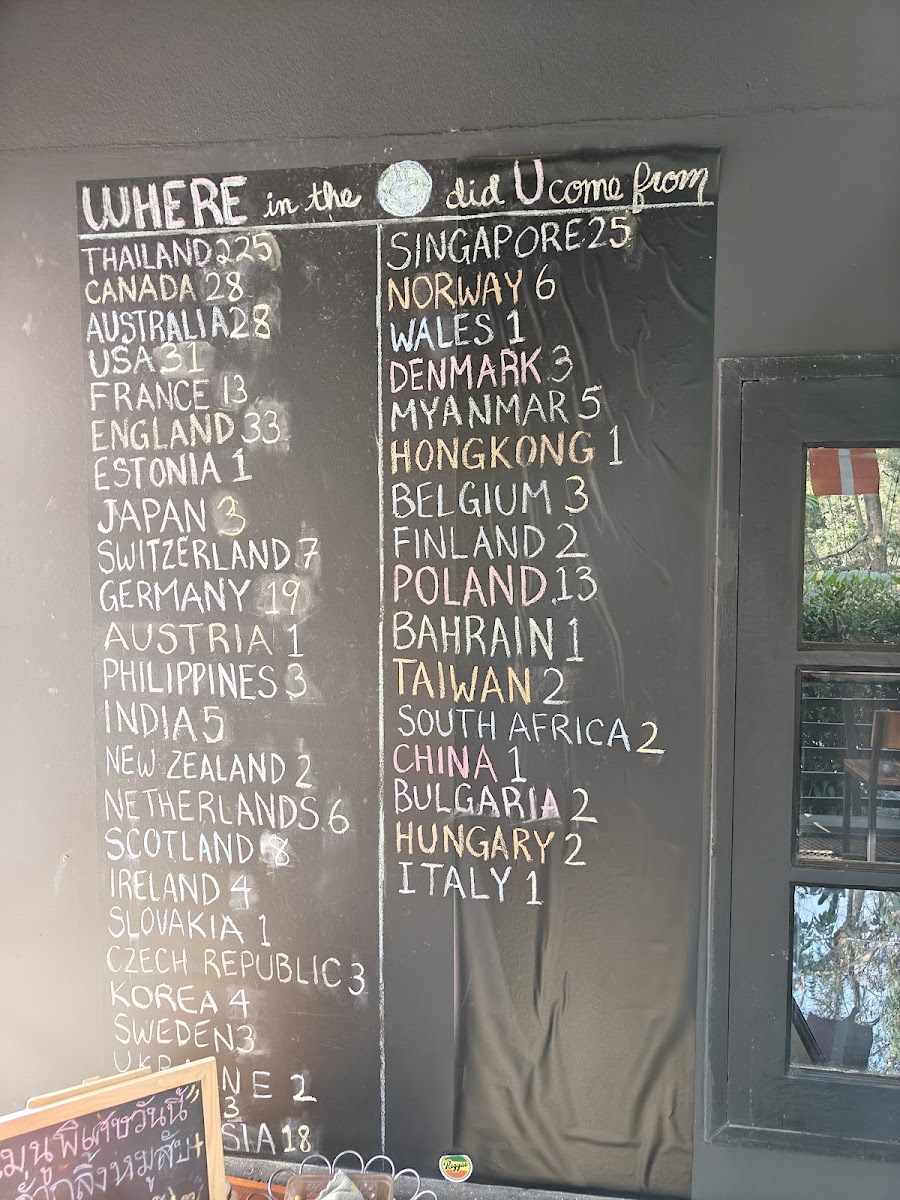 WHERE in the did U come from
THAILAND 225
CANADA 28
AUSTRALIA 28
USA 31
FRANCE 13
ENGLAND 33
ESTONIA 1
JAPAN 3
SWITZERLAND 7
GERMANY 19
AUSTRIA 1
PHILIPPINES 3
INDIA 5
NEW ZEALAND 2
NETHERLANDS 6
SCOTLAND 8
IRELAND 4
SLOVAKIA 1
CZECH REPUBLIC 3
KOREA 4
SWEDEN 3
NE 2
3
SIA 18
SINGAPORE 25
NORWAY 6
WALES 1
DENMARK 3
MYANMAR 5
HONGKONG 1
BELGIUM 3
FINLAND 2
POLAND 13
BAHRAIN 1
TAIWAN 2
SOUTH AFRICA 2
CHINA 1
BULGARIA 2
HUNGARY 2
ITALY 1
เมนูพิเศษวันนี้"
คั่วกลิ้งหมูสับ+
Reggae